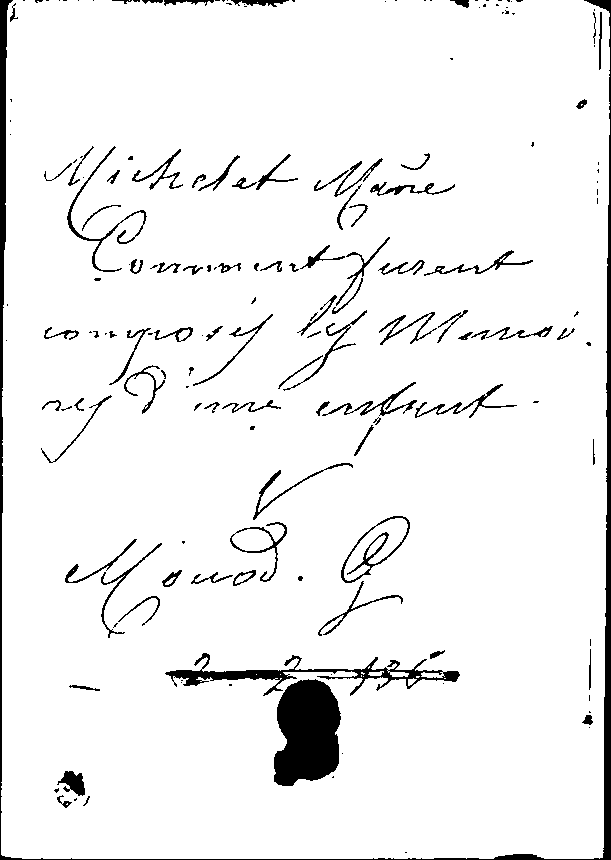 Michelet Mme
Comment furent
composés les Memoi.
res d'une enfant.
V
Monod. G
2 2 136